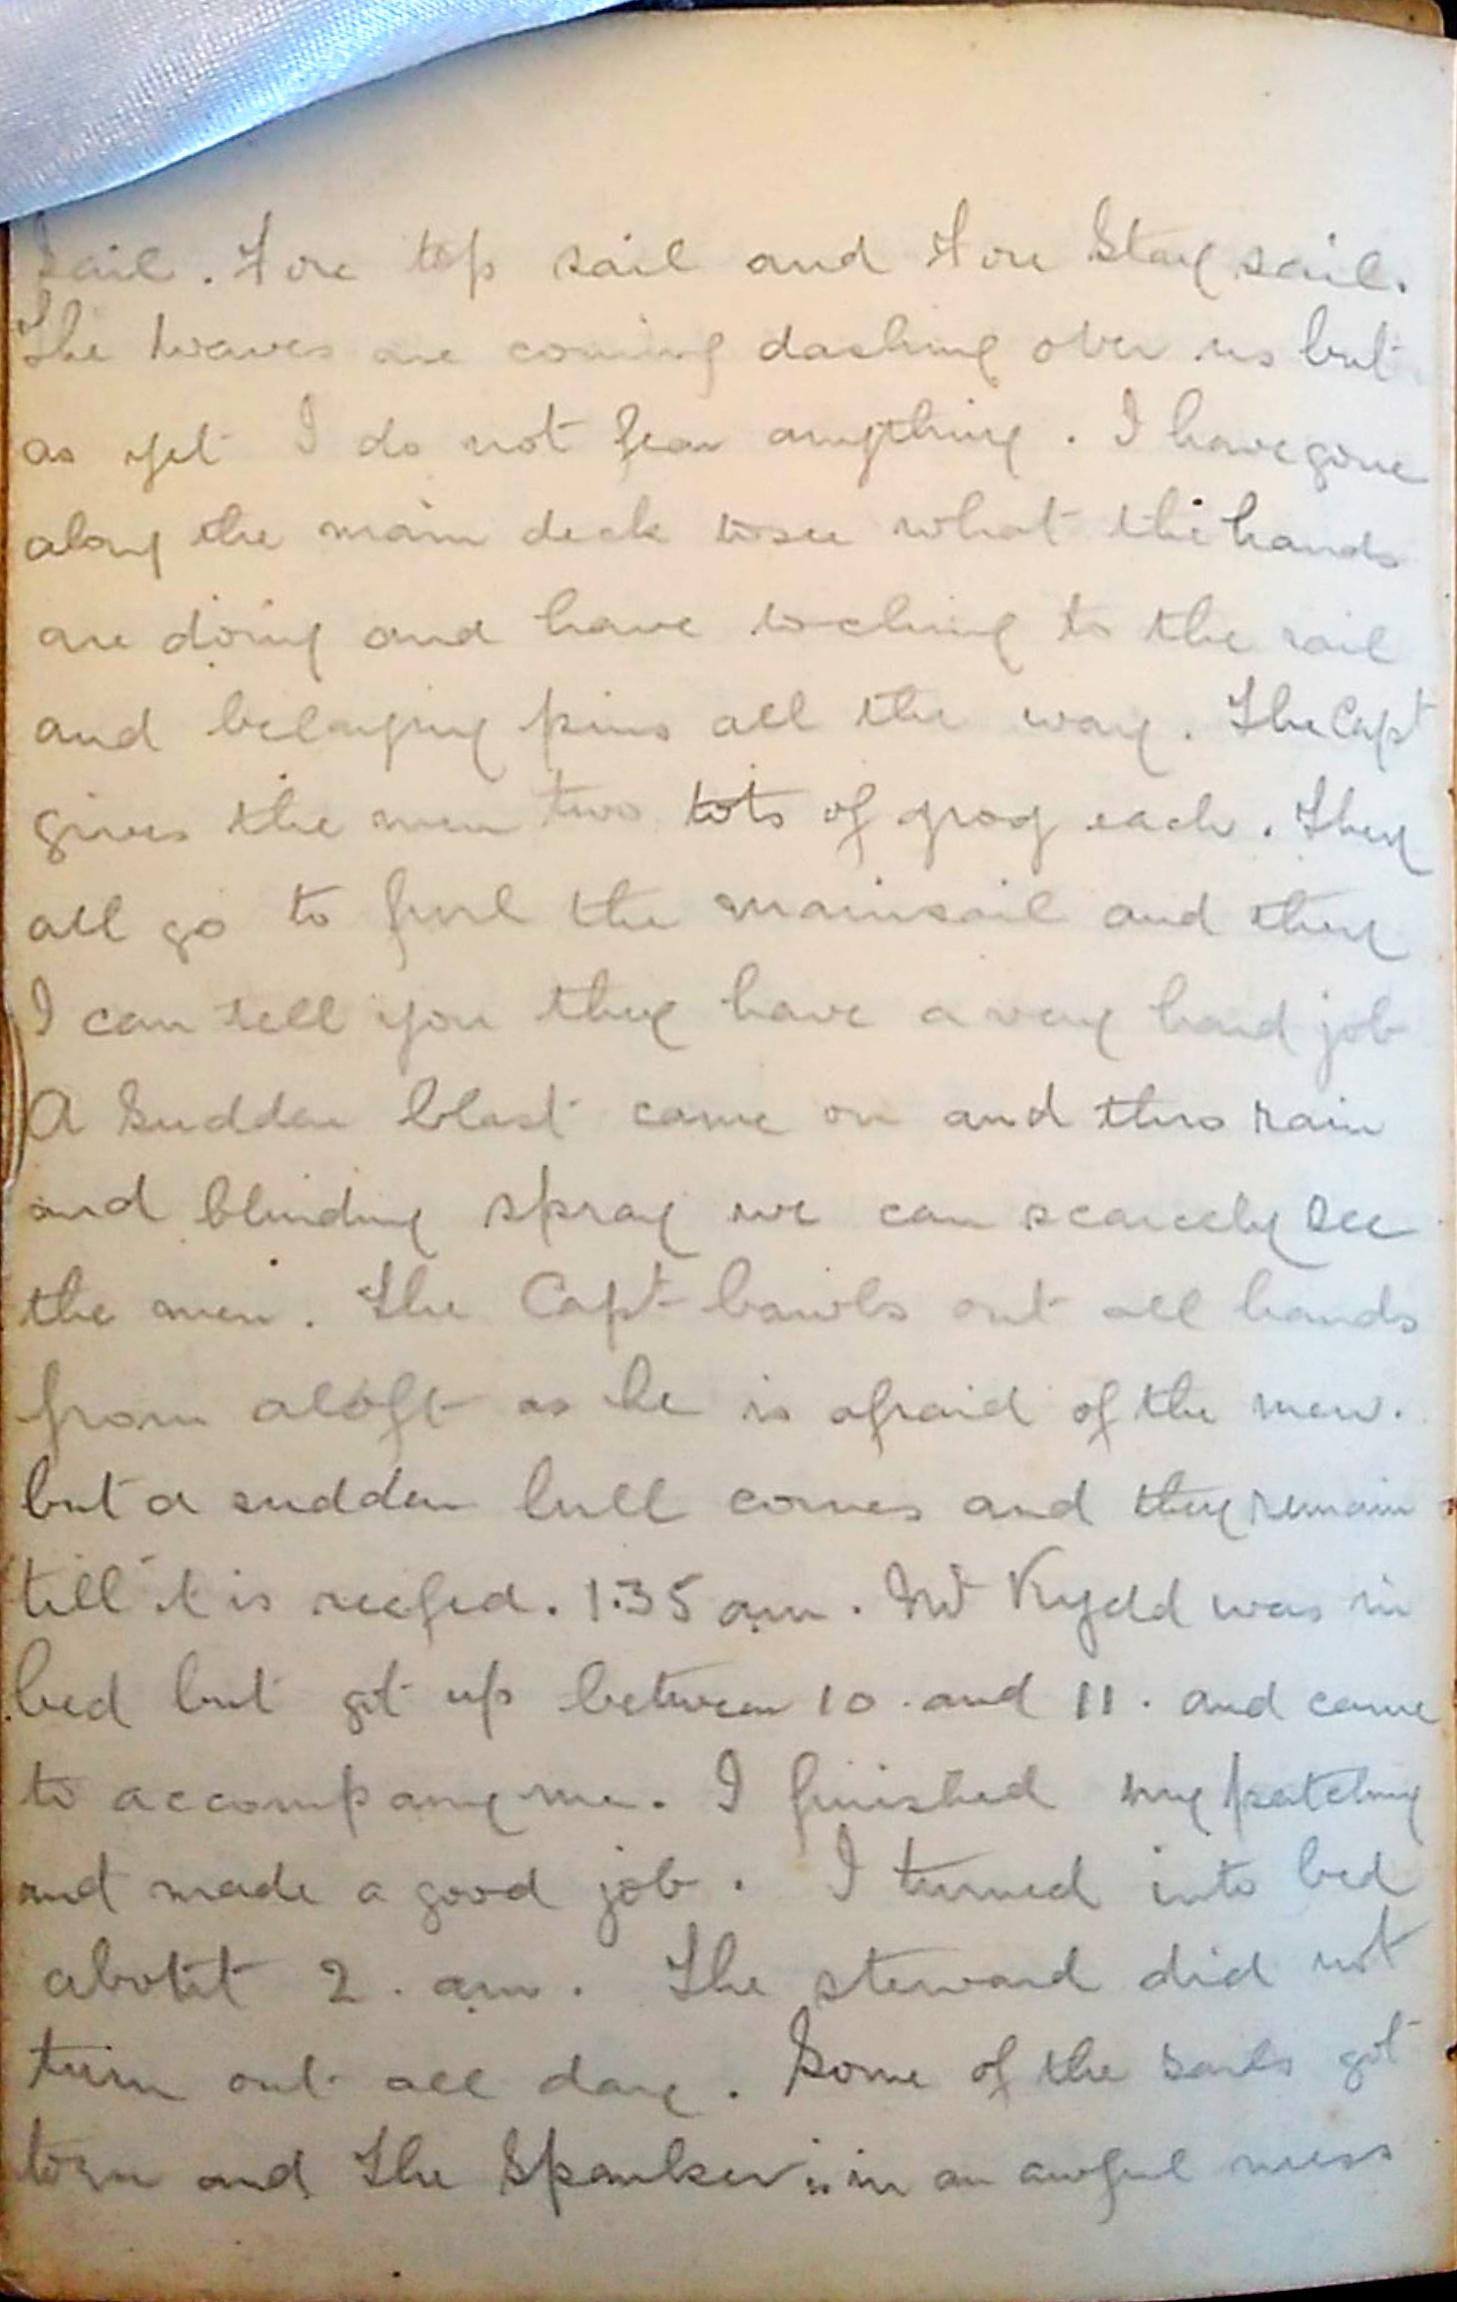 Sail. Fore top sail and Fore Stay sail.
The waves are coming dashing over us but
as yet I do not fear anything. I have gone
along the main deck to see what the hands
are doing and have to cling to the rail
and belaying pins all the way. The Capt
gives the men two tots of grog each. They
all go to furl the mainsail and they
I can tell you they have a very hard job
A Sudden blast came on and thro rain
and blinding spray we can scarcely see
the men. The Capt bawls out all hands
from aloft as he is afraid of the men.
but a sudden lull comes and they remain
till it is reefed. 1.35 am. Mr Kydd was in
bed but got up between 10. and 11. and came
to accompany me. I finished my patching
and made a good job. I turned into bed
about 2. am. The steward did not
turn out all day. Some of the sails got
torn and the Spanker is in an awful mess